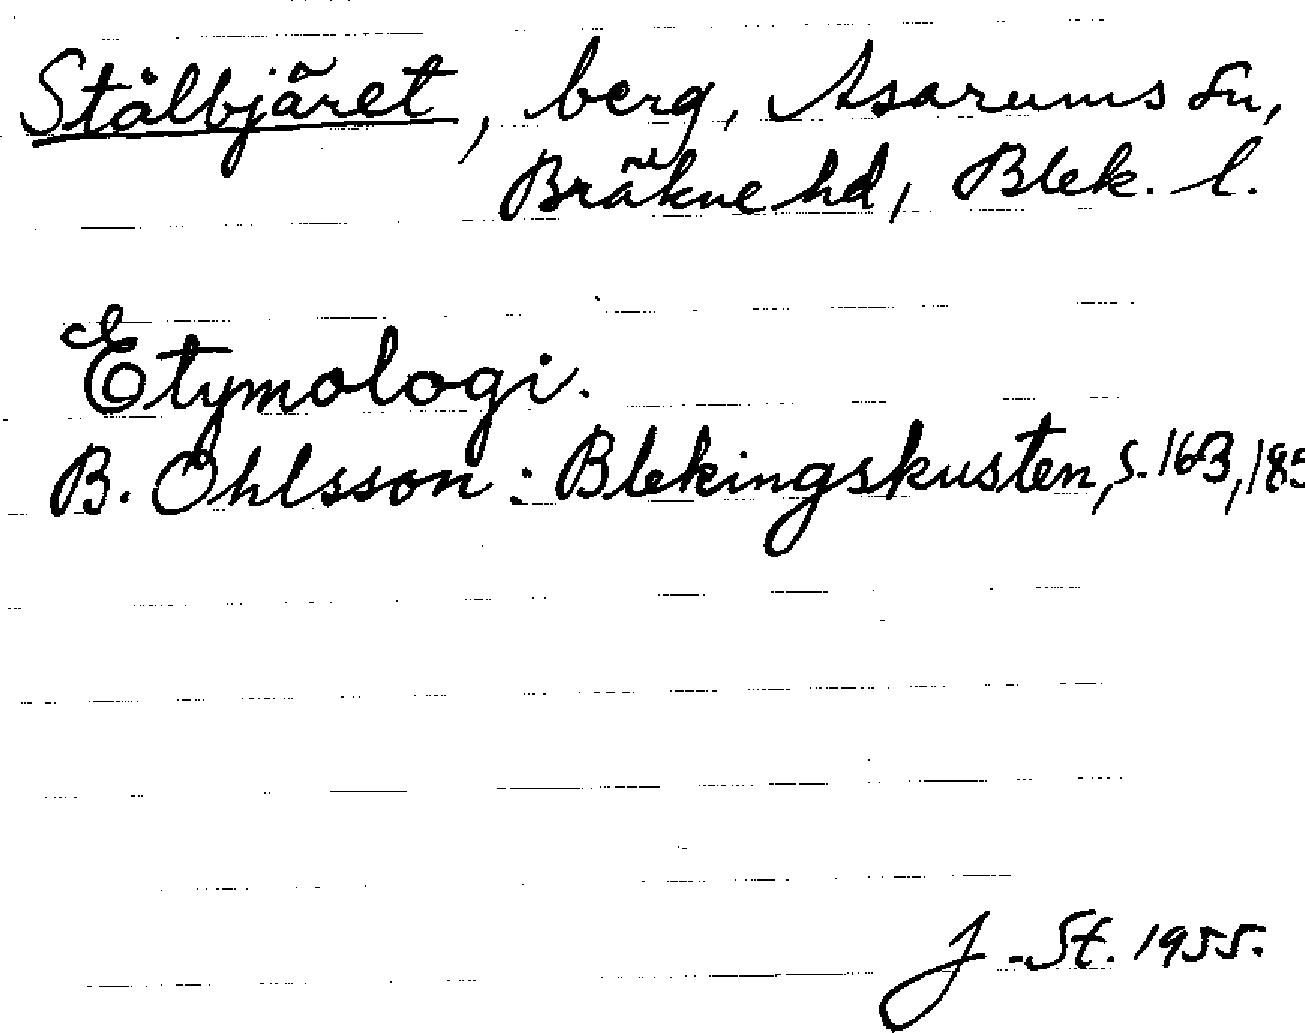 Stålbjäret, berg, Asarums sn,
Bräkne hd, Blek. l.
Etymologi.
B. Ohlsson: Blekingskusten, s. 163, 185
J. St. 1955.